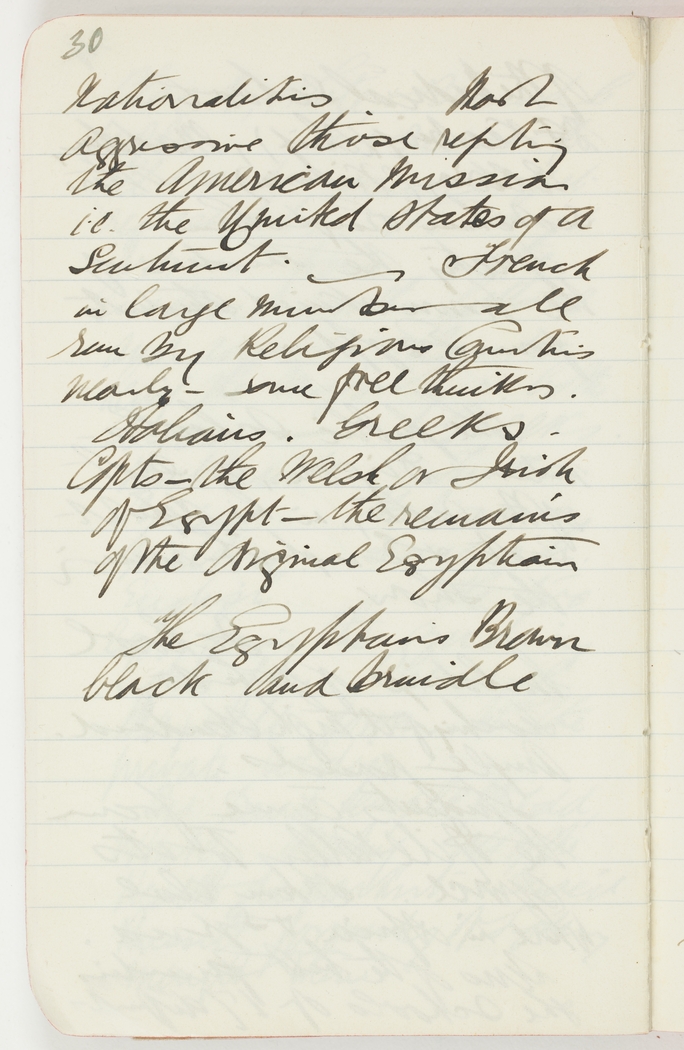 30
Nationalities. Most
agressive those repting
the American Mission
i.e. the United States of A
Sentiment. French
in large number all
run by Religious
nearly - some free thinkers.
Italians. Greeks.
Copts - the Welsh or Irish
of Egypt - the remains
of the original Egyptian
The Egyptians Brown
black and brindle